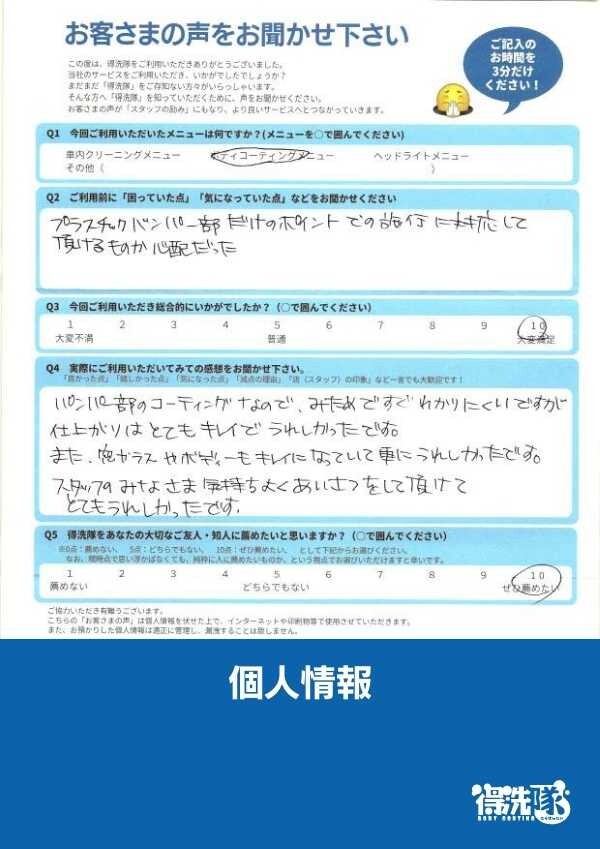 お客さまの声をお聞かせ下さい
ご記入の
お時間を
3分だけ
ください！
この度は、得洗隊をご利用いただきありがとうございました。
当社のサービスをご利用いただき、いかがでしたでしょうか？
まだまだ「得洗隊」をご存知ない方々がいらっしゃいます。
そんな方へ「得洗隊」を知っていただくために、声をお聞かせください。
お客さまの声が「スタッフの励み」にもなり、より良いサービスへとつながっていきます。
Q1 今回ご利用いただいたメニューは何ですか？(メニューを○で囲んでください)
車内クリーニングメニュー ボディコーティングメニュー ヘッドライトメニュー
その他（ ）
Q2 ご利用前に「困っていた点」「気になっていた点」などをお聞かせください
プラスチックバンパー部だけのポイントでの施行に対応して
頂けるものか心配だった
Q3 今回ご利用いただき総合的にいかがでしたか？（○で囲んでください）
1 2 3 4 5 6 7 8 9 10
大変不満 普通 大変満足
Q4 実際にご利用いただいてみての感想をお聞かせ下さい。
「良かった点」「嬉しかった点」「気になった点」「減点の理由」「店（スタッフ）の印象」など一言でも大歓迎です！
バンパー部のコーティングなので、みためですぐわかりにくいですが
仕上がりはとてもキレイでうれしかったです。
また、窓ガラスやボディーもキレイになっていて更にうれしかったです。
スタッフのみなさま気持ちよくあいさつをして頂けて
とてもうれしかったです。
Q5 得洗隊をあなたの大切なご友人・知人に薦めたいと思いますか？（○で囲んでください）
※0点：薦めない、 5点：どちらでもない、 10点：ぜひ薦めたい、 として下記からお選びください。
なお、現時点で思い浮かばなくても、純粋に人に薦めたいものか、という視点でお選びいただけますと幸いです。
1 2 3 4 5 6 7 8 9 10
薦めない どちらでもない ぜひ薦めたい
ご協力いただき有難うございます。
こちらの「お客さまの声」は個人情報を伏せた上で、インターネットや印刷物等で使用させていただきます。
また、お預かりした個人情報は適正に管理し、漏洩することは致しません。
個人情報
得洗隊
BODY COATING